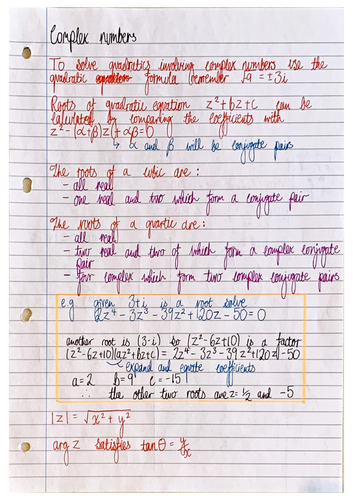 Complex numbers
To solve quadratics involving complex numbers use the
quadratic formula remember √9 = ±3i
Roots of quadratic equation z²+bz+c can be
calculated by comparing the coefficients with
z²-(α+β)z+αβ=0
↳ α and β will be conjugate pairs
The roots of a cubic are:
- all real
- one real and two which form a conjugate pair
The roots of a quartic are:
- all real
- two real and two of which form a complex conjugate
pair
- four complex which form two complex conjugate pairs
e.g given 3+i is a root solve
2z⁴-3z³-39z²+120z-50=0
another root is (3-i) so (z²-6z+10) is a factor
(z²-6z+10)(az²+bz+c) = 2z⁴-3z³-39z²+120z-50
expand and equate coefficients
a=2 b=9 c=-15
∴ the other two roots are z=1/2 and -5
|z| = √x²+y²
arg z satisfies tanθ = y/x